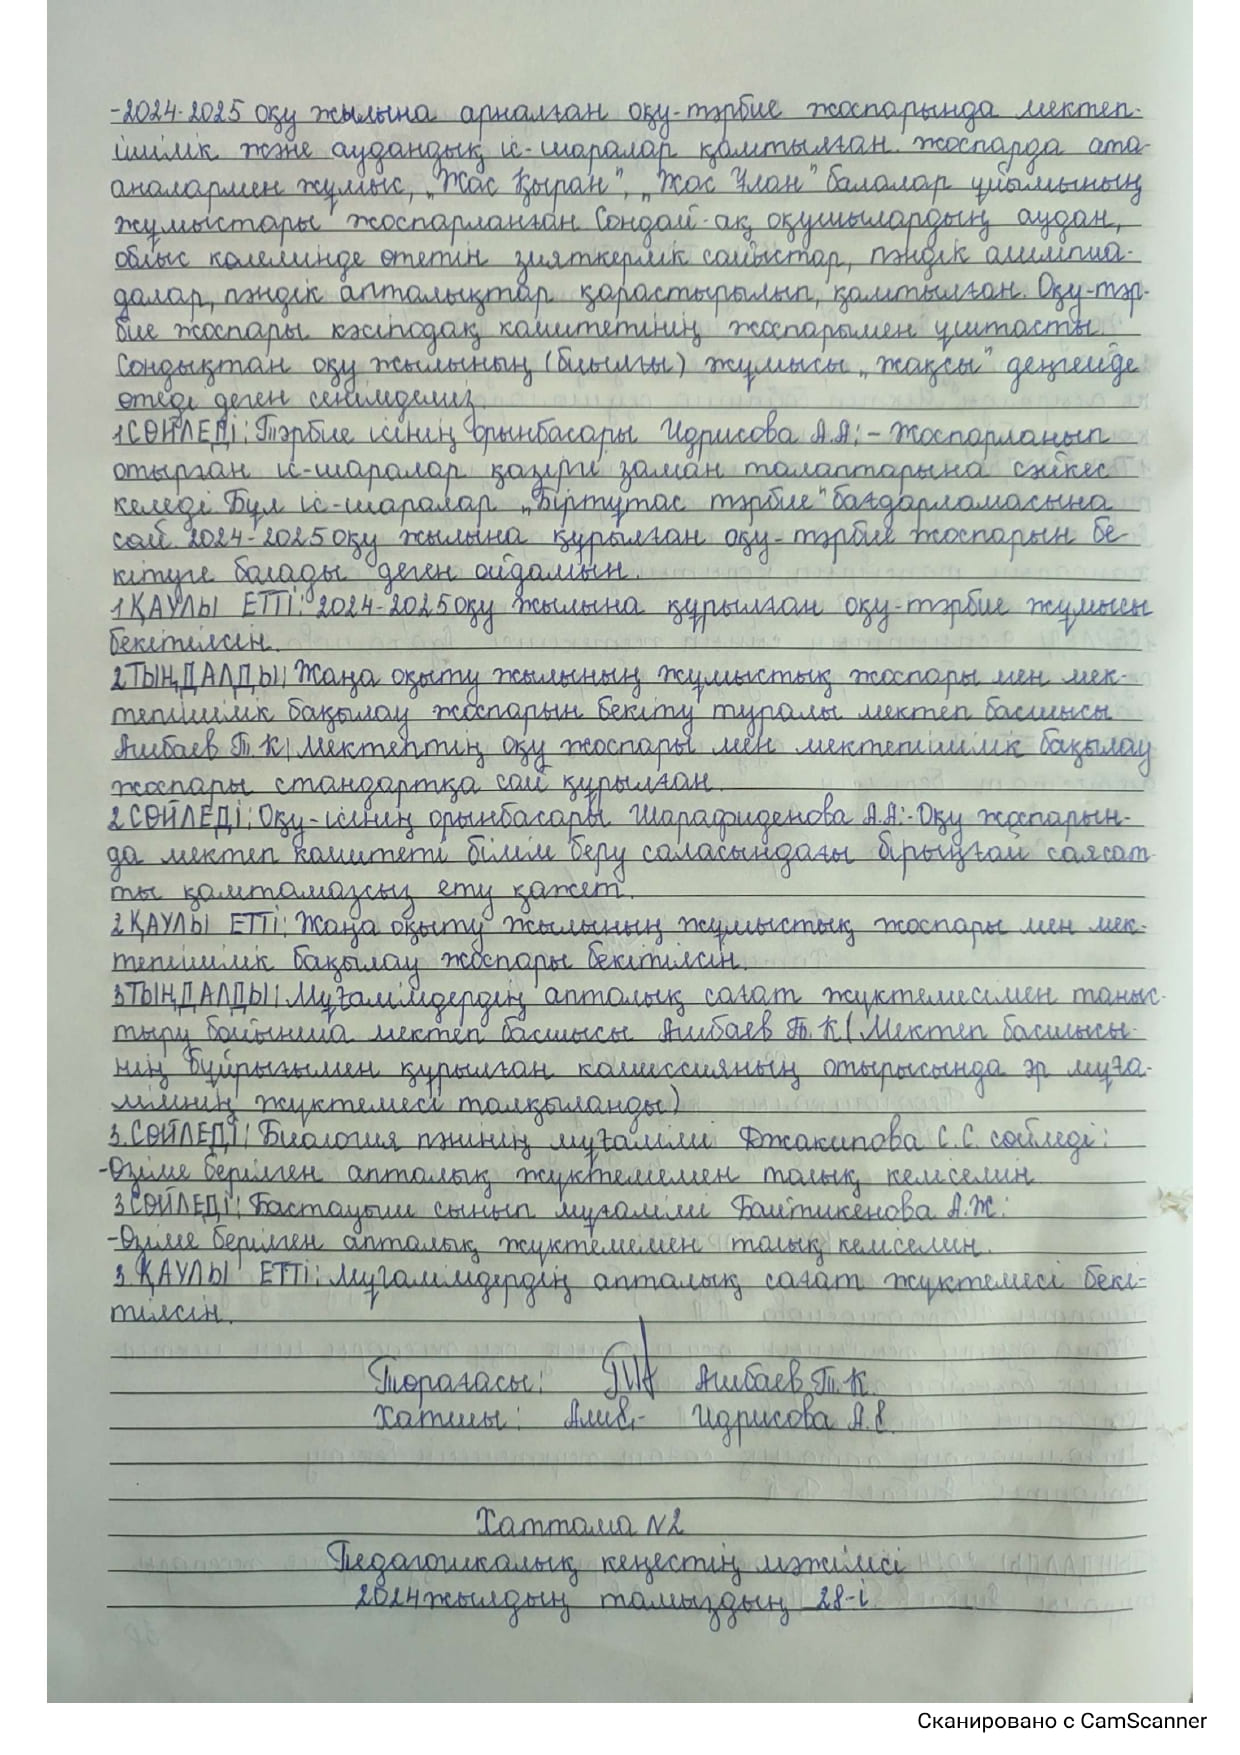 -2024-2025 оқу жылына арналған оқу-тәрбие жоспарында мектеп-
ішілік және аудандық іс-шаралар қамтылған. жоспарда ата-
аналармен жұмыс, „Жас Қыран", „Жас Ұлан" балалар ұйымының
жұмыстары жоспарланған. Сондай-ақ, оқушылардың аудан,
облыс көлемінде өтетін зияткерлік сайыстар, пәндік олимпиа-
далар, пәндік апталықтар қарастырылып, қамтылған. Оқу-тәр-
бие жоспары кәсіподақ комитетінің жоспарымен ұштасты.
Сондықтан оқу жылының (биылғы) жұмысы „жақсы" деңгейде
өтеді деген сенімдеміз.
1 СӨЙЛЕДІ: Тәрбие ісінің орынбасары Идрисова А.Ә: - Жоспарланып
отырған іс-шаралар қазіргі заман талаптарына сәйкес
келеді. Бұл іс-шаралар „Біртұтас тәрбие" бағдарламасына
сай. 2024-2025 оқу жылына құрылған оқу-тәрбие жоспарын бе-
кітуге болады деген ойдамын.
1 ҚАУЛЫ ЕТТІ: 2024-2025 оқу жылына құрылған оқу-тәрбие жұмысы
бекітілсін.
2 ТЫҢДАЛДЫ: Жаңа оқыту жылының жұмыстық жоспары мен мек-
тепішілік бақылау жоспарын бекіту туралы мектеп басшысы
Ашбаев Т.К: Мектептің оқу жоспары мен мектепішілік бақылау
жоспары стандартқа сай құрылған.
2 СӨЙЛЕДІ: Оқу-ісінің орынбасары Шарафиденова А.А:-Оқу жоспарын-
да мектеп комитеті білім беру саласындағы бірыңғай саясат-
ты қамтамасыз ету қажет.
2 ҚАУЛЫ ЕТТІ: Жаңа оқыту жылының жұмыстық жоспары мен мек-
тепішілік бақылау жоспары бекітілсін.
3 ТЫҢДАЛДЫ: Мұғалімдердің апталық сағат жүктемесімен таныс-
тыру бойынша мектеп басшысы Ашбаев Т.К (Мектеп басшысы-
ның бұйрығымен құрылған комиссияның отырысында әр мұға-
лімнің жүктемесі талқыланды)
3. СӨЙЛЕДІ: Биология пәнінің мұғалімі Джакипова С.С. сөйледі:
-Өзіме берілген апталық жүктемемен толық келісемін
3 СӨЙЛЕДІ: Бастауыш сынып мұғалімі Байтикенова А.Ж:
-Өзіме берілген апталық жүктемемен толық келісемін.
3. ҚАУЛЫ ЕТТІ: Мұғалімдердің апталық сағат жүктемесі бекі-
тілсін.
Төрағасы: Ашбаев Т.К.
Хатшы: Идрисова А.Ә.
Хаттама №2
Педагогикалық кеңестің мәжілісі
2024 жылдың тамыздың 28-і
Сканировано с CamScanner